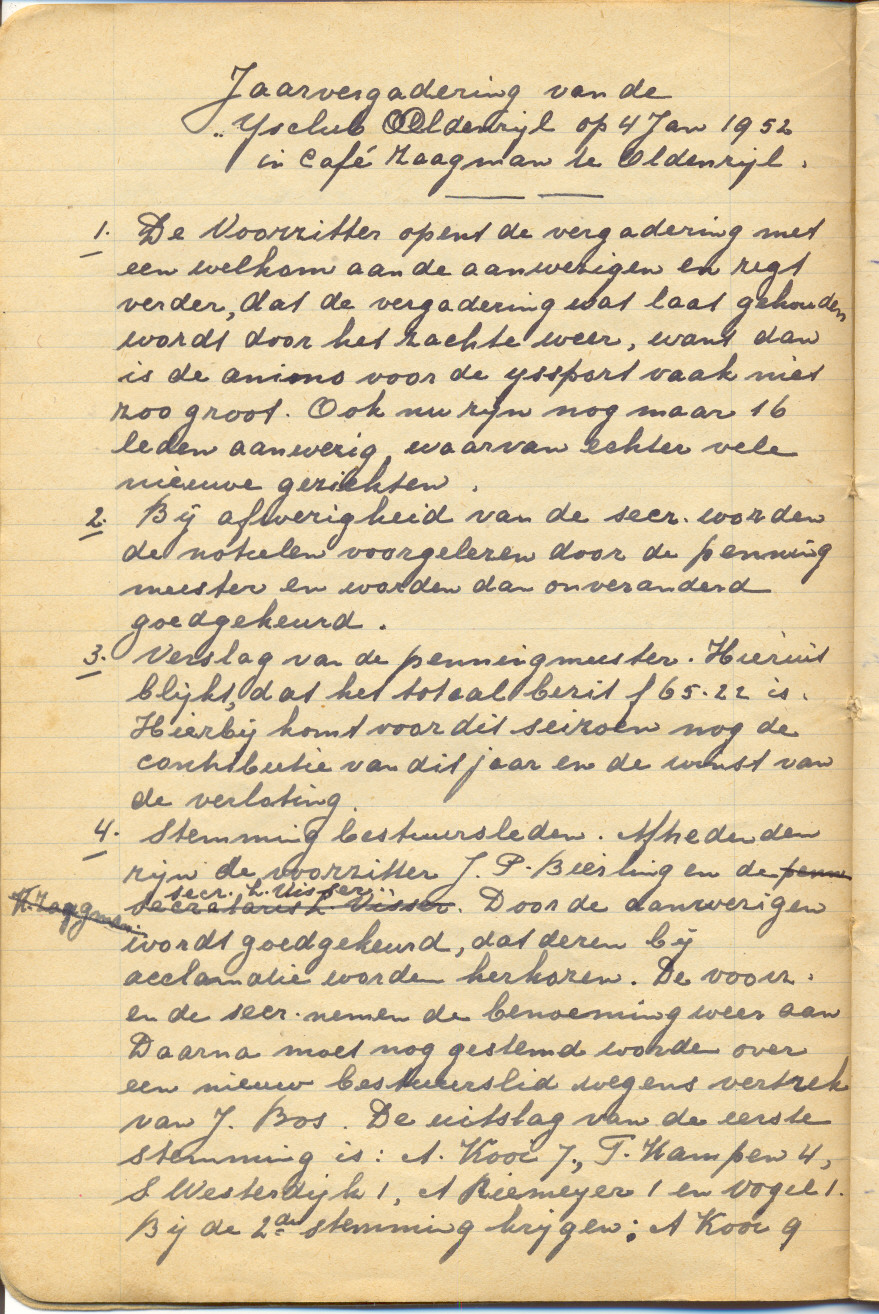 Jaarvergadering van de
„Ysclub Oldenzijl op 4 Jan 1952
in Café Zaagman te Oldenzijl.
1. De Voorzitter opent de vergadering met
een welkom aan de aanwezigen en zegt
verder, dat de vergadering wat laat gehouden
wordt door het zachte weer, want dan
is de animo voor de yssport vaak niet
zoo groot. Ook nu zijn nog maar 16
leden aanwezig, waarvan echter vele
nieuwe gezichten.
2. Bij afwezigheid van de secr. worden
de notulen voorgelezen door de penning
meester en worden dan onveranderd
goedgekeurd.
3. Verslag van de penningmeester. Hieruit
blijkt, dat het totaal bezit f 65.22 is.
Hierbij komt voor dit seizoen nog de
contributie van dit jaar en de winst van
de verloting.
4. Stemming bestuursleden. Aftredenden
zijn de voorzitter J. P. Bierling en de penn
secr. L. Visser.
K. Zaagman. secretaris L. Visser. Door de aanwezigen
wordt goedgekeurd, dat dezen bij
acclamatie worden herkozen. De voorz.
en de secr. nemen de benoeming weer aan
Daarna moet nog gestemd worde over
een nieuw bestuurslid wegens vertrek
van J. Bos. De uitslag van de eerste
stemming is: A. Kooi 7, T. Kampen 4,
S Westerdijk 1, A Riemeyer 1 en Vogel 1.
Bij de 2de stemming krijgen: A Kooi 9